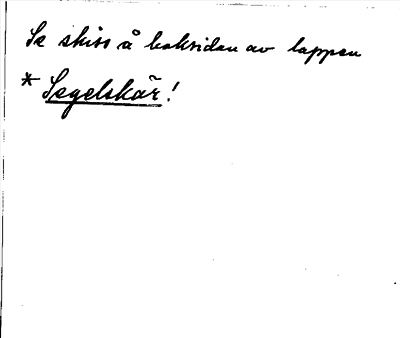 Se skiss å baksidan av lappen
* Segelskär!